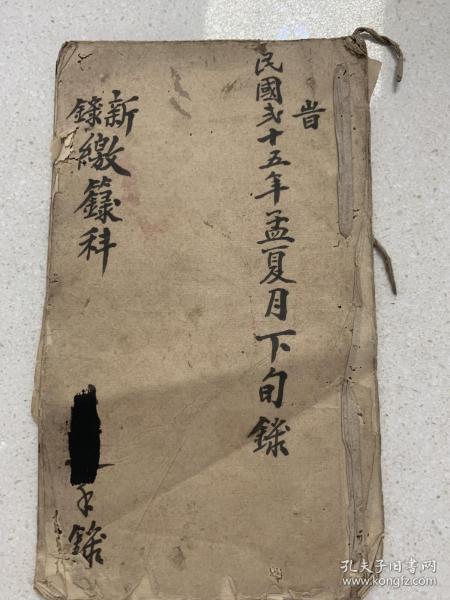 旹
民國弍十五年孟夏月下旬錄
新錄繳籙科
手錄
孔夫子旧书网
www.kongfz.com